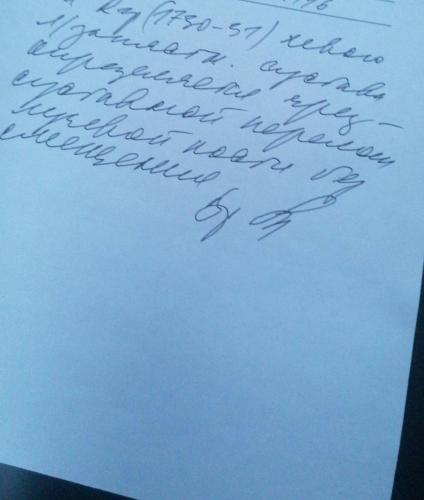 Rg (1730-31) левого
л/запястн. сустава
определяется чрез-
суставной перелом
лучевой кости без
смещения